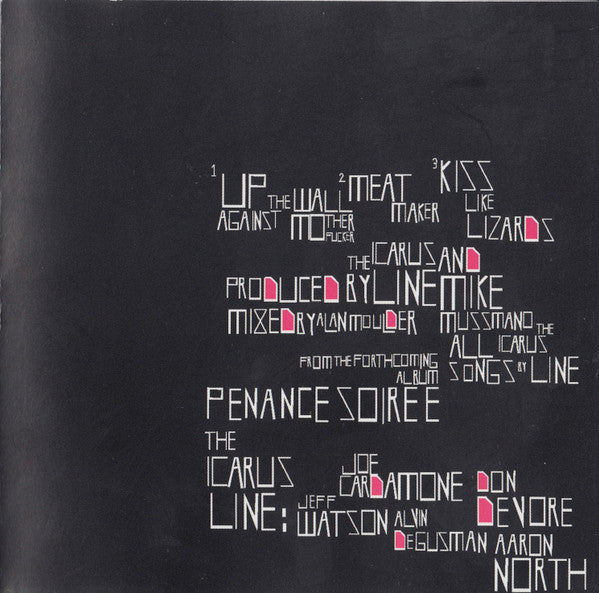 1 UP THE WALL
AGAINST MOTHER
FUCKER
2 MEAT
MAKER
3 KISS
LIKE
LIZARDS
PRODUCED BY THE ICARUS LINE AND MIKE MUSSMANO
MIXED BY ALAN MOULDER
ALL SONGS BY THE ICARUS LINE
FROM THE FORTHCOMING
ALBUM
PENANCE SOIREE
THE
ICARUS
LINE:
JOE
CARDAMONE
DON
DEVORE
JEFF
WATSON
ALVIN
DEGUSMAN
AARON
NORTH